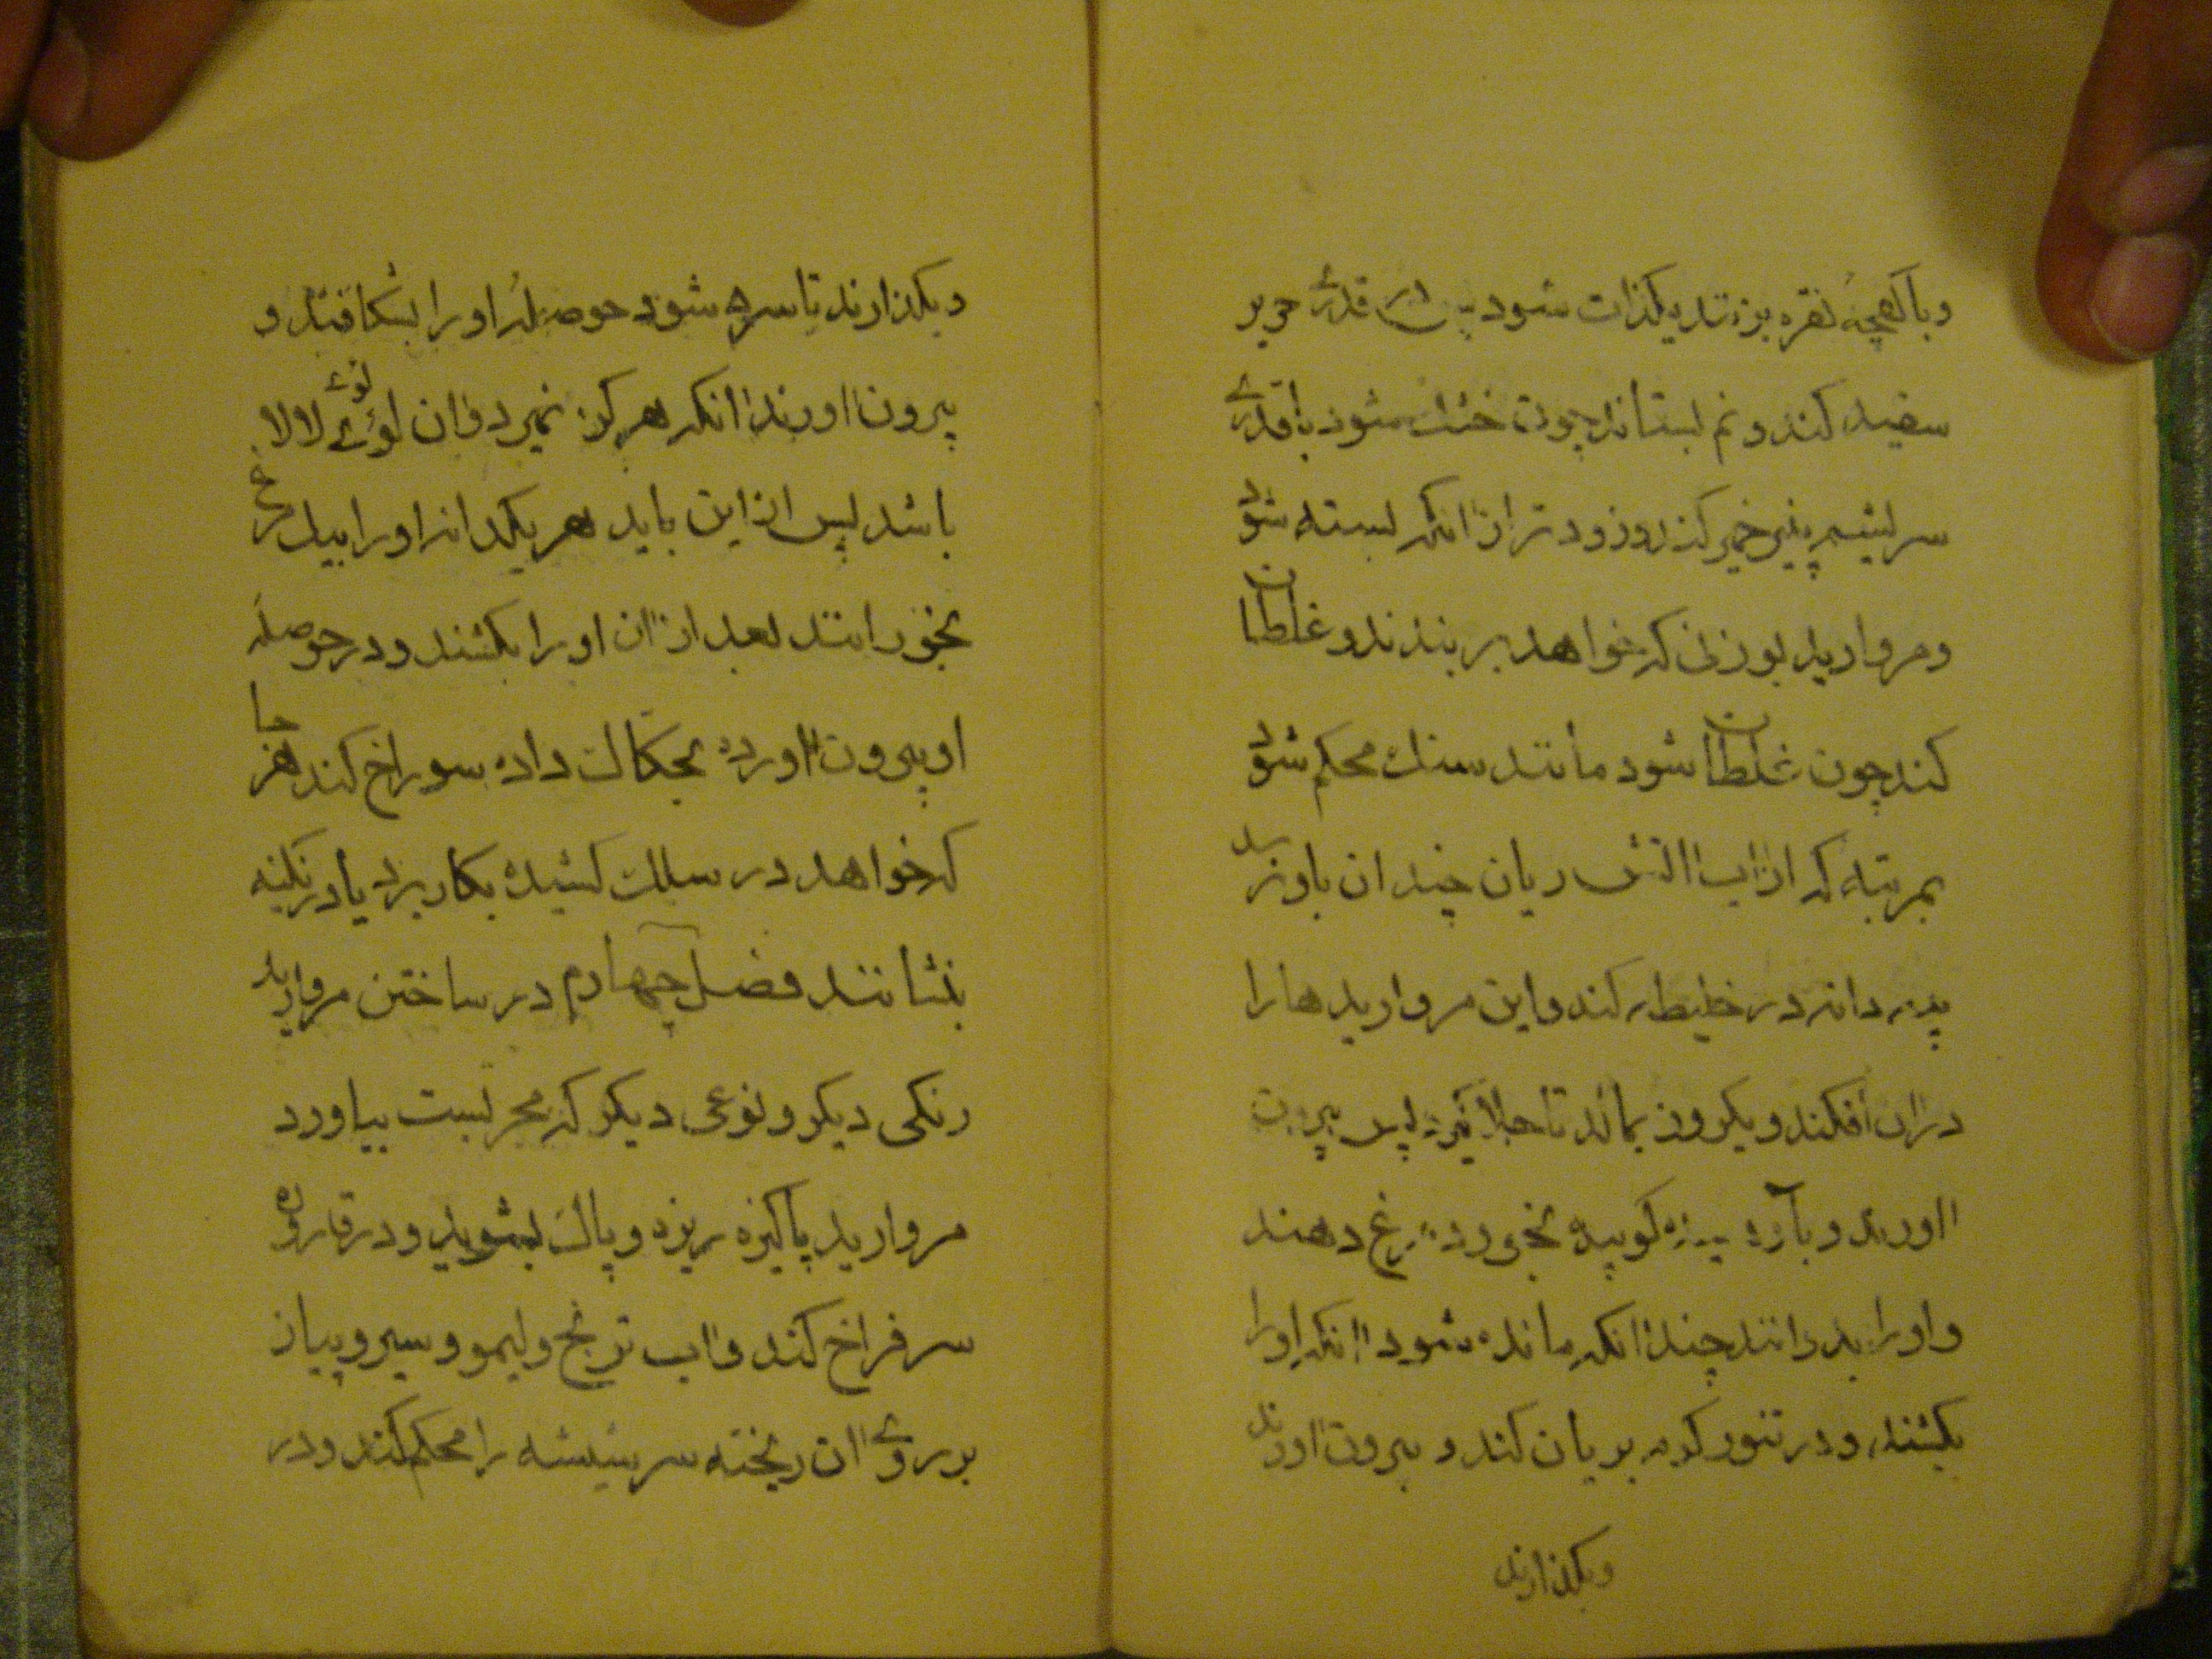 وبا کفچهٔ نقره بزند تا یکذات شود پس قدری حریر
سفید کند و نم بستاند چون خشک شود با قدری
سریشم پنیر خمیر کند و زودتر از انکه بسته شود
و مروارید بوزنی که خواهد بر بندند و غلطان
کند چون غلطان شود مانند سنک محکم شود
بمرتبه که از اب اتش زیان چندان باو نرسد
پنبه دانه در خلیطه کند و این مرواریدها را
در ان افکند و یکروز بماند تا جلا کیرد پس بیرون
اورند و با کوبیده بخورد مرغ دهند
و او را بدوانند چندانکه مانده شود انکه او را
بکشند و در تنور کرم بریان کند و بیرون اورند
وبکذارند
وبکذارند تا سرد شود حوصلهٔ او را بشکافند و
بیرون اورند انکه هر کز نمیرد و ان لؤلؤی لالا
باشد پس از این باید هر یکدانه او را بیک مرغ
بخورانند بعد از ان او را بکشند و در حوصله
او بیرون اورده بحکاک داده سوراخ کند هر جا
که خواهد در سلک کشیده بکار برد یا در نکینه
بنشانند فصل چهارم در ساختن مروارید
رنکی دیکر و نوعی دیکر که مجربست بیاورد
مروارید پاکیزه ریزه و پاک بشوید و در قاروره
سر فراخ کند و اب ترنج و لیمو و سیر و پیاز
بر روی ان ریخته سر شیشه را محکم کند و در